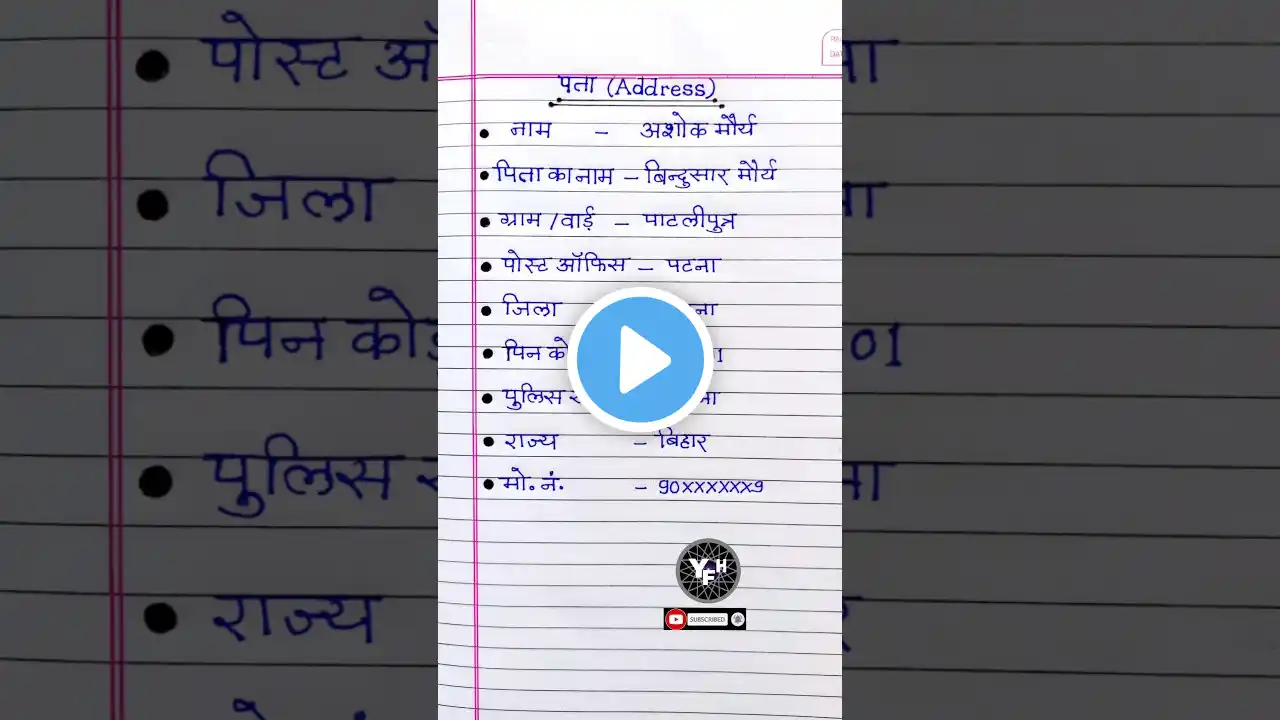 पता (Address)
नाम - अशोक मौर्य
पिता का नाम - बिन्दुसार मौर्य
ग्राम / वार्ड - पाटलीपुत्र
पोस्ट ऑफिस - पटना
जिला ना
पिन को 1
पुलिस ना
राज्य - बिहार
मो. नं. - 90xxxxxxx9
YFH
SUBSCRIBED
पोस्ट ऑ
जिला
पिन कोड 01
पुलिस
राज्य